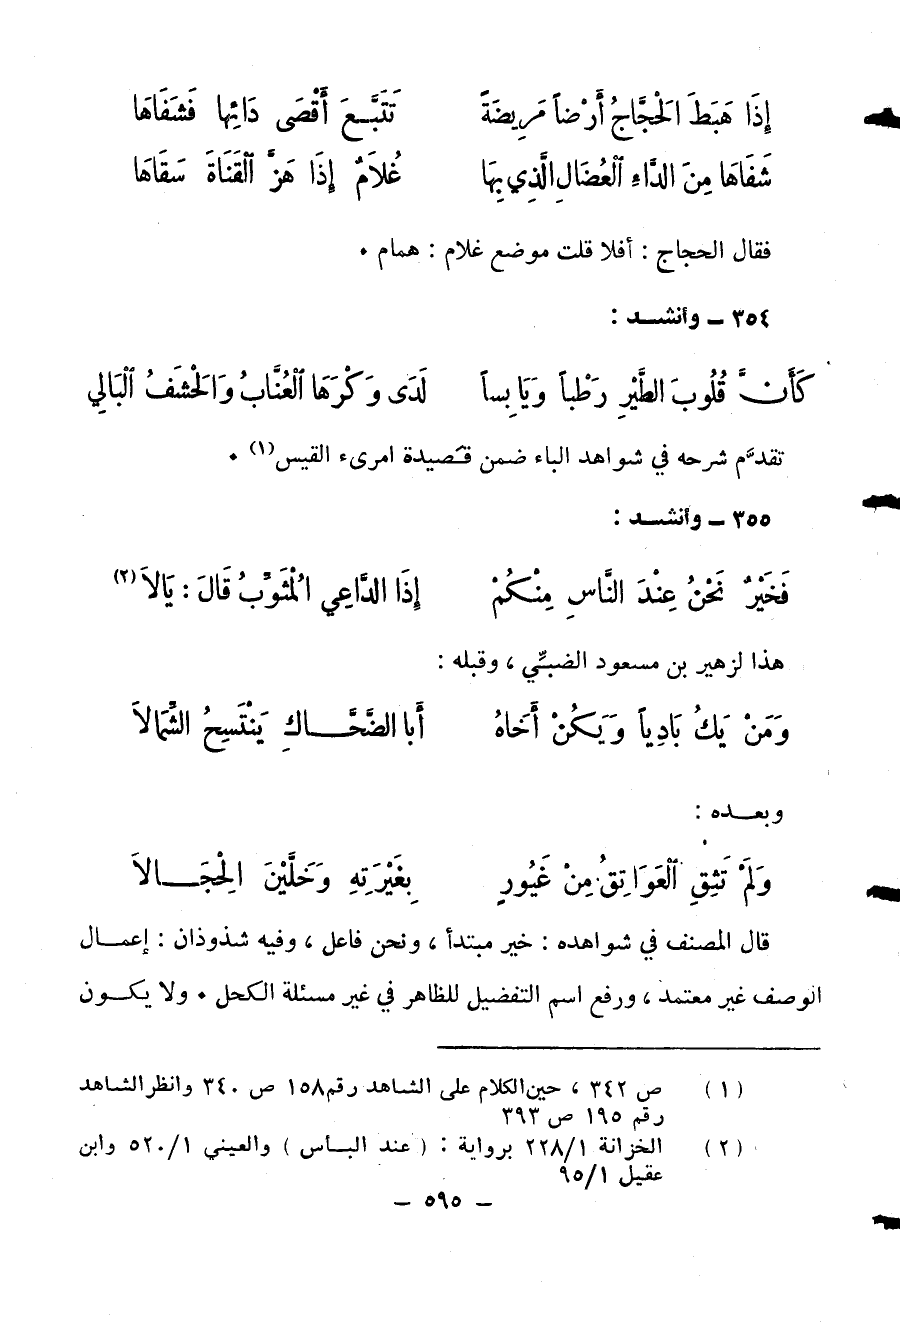 إِذَا هَبَطَ الْحَجَّاجُ أَرْضاً مَرِيضَةً تَتَبَّعَ أَقْصَى دَائِها فَشَفَاهَا
شَفَاهَا مِنَ الدَّاءِ ٱلْعُضَالِ الَّذِي بِهَا غُلاَمٌ إِذَا هَزَّ ٱلْقَنَاةَ سَقَاهَا
فقال الحجاج : أفلا قلت موضع غلام : همام ٠
٣٥٤ ــ وأنشــد :
كَأَنَّ قُلُوبَ الطَّيْرِ رَطْباً وَيَابِساً لَدَى وَكْرِهَا ٱلْعُنَّابُ وَالْحَشَفُ ٱلْبَالِي
تقدَّم شرحه في شواهد الباء ضمن قصيدة امرىء القيس(١) ٠
٣٥٥ ــ وأنشــد :
فَخَيْرٌ نَحْنُ عِنْدَ النَّاسِ مِنْكُمْ إِذَا الدَّاعِي الْمُثَوِّبُ قَالَ : يَالاَ (٢)
هذا لزهير بن مسعود الضبِّي ، وقبله :
وَمَنْ يَكُ بَادِياً وَيَكُنْ أَخَاهُ أَبا الضَّحَّـــاكِ يَنْتَسِجُ الشِّمَالاَ
وبعــده :
وَلَمْ تَثِقِ ٱلْعَوَاتِقُ مِنْ غَيُورٍ بِغَيْرَتِهِ وَخَلَّيْنَ الْحِجَــالاَ
قال المصنف في شواهده : خير مبتدأ ، ونحن فاعل ، وفيه شذوذان : إعمــال
الوصف غير معتمد ، ورفع اسم التفضيل للظاهر في غير مسئلة الكحل ٠ ولا يكــون
(١) ص ٣٤٢ ، حين الكلام على الشاهد رقم ١٥٨ ص ٣٤٠ وانظر الشاهد
رقم ١٩٥ ص ٣٩٣
(٢) الخزانة ٢٢٨/١ برواية : ( عند البأس ) والعيني ٥٢٠/١ وابن
عقيل ٩٥/١
ــ ٥٩٥ ــ